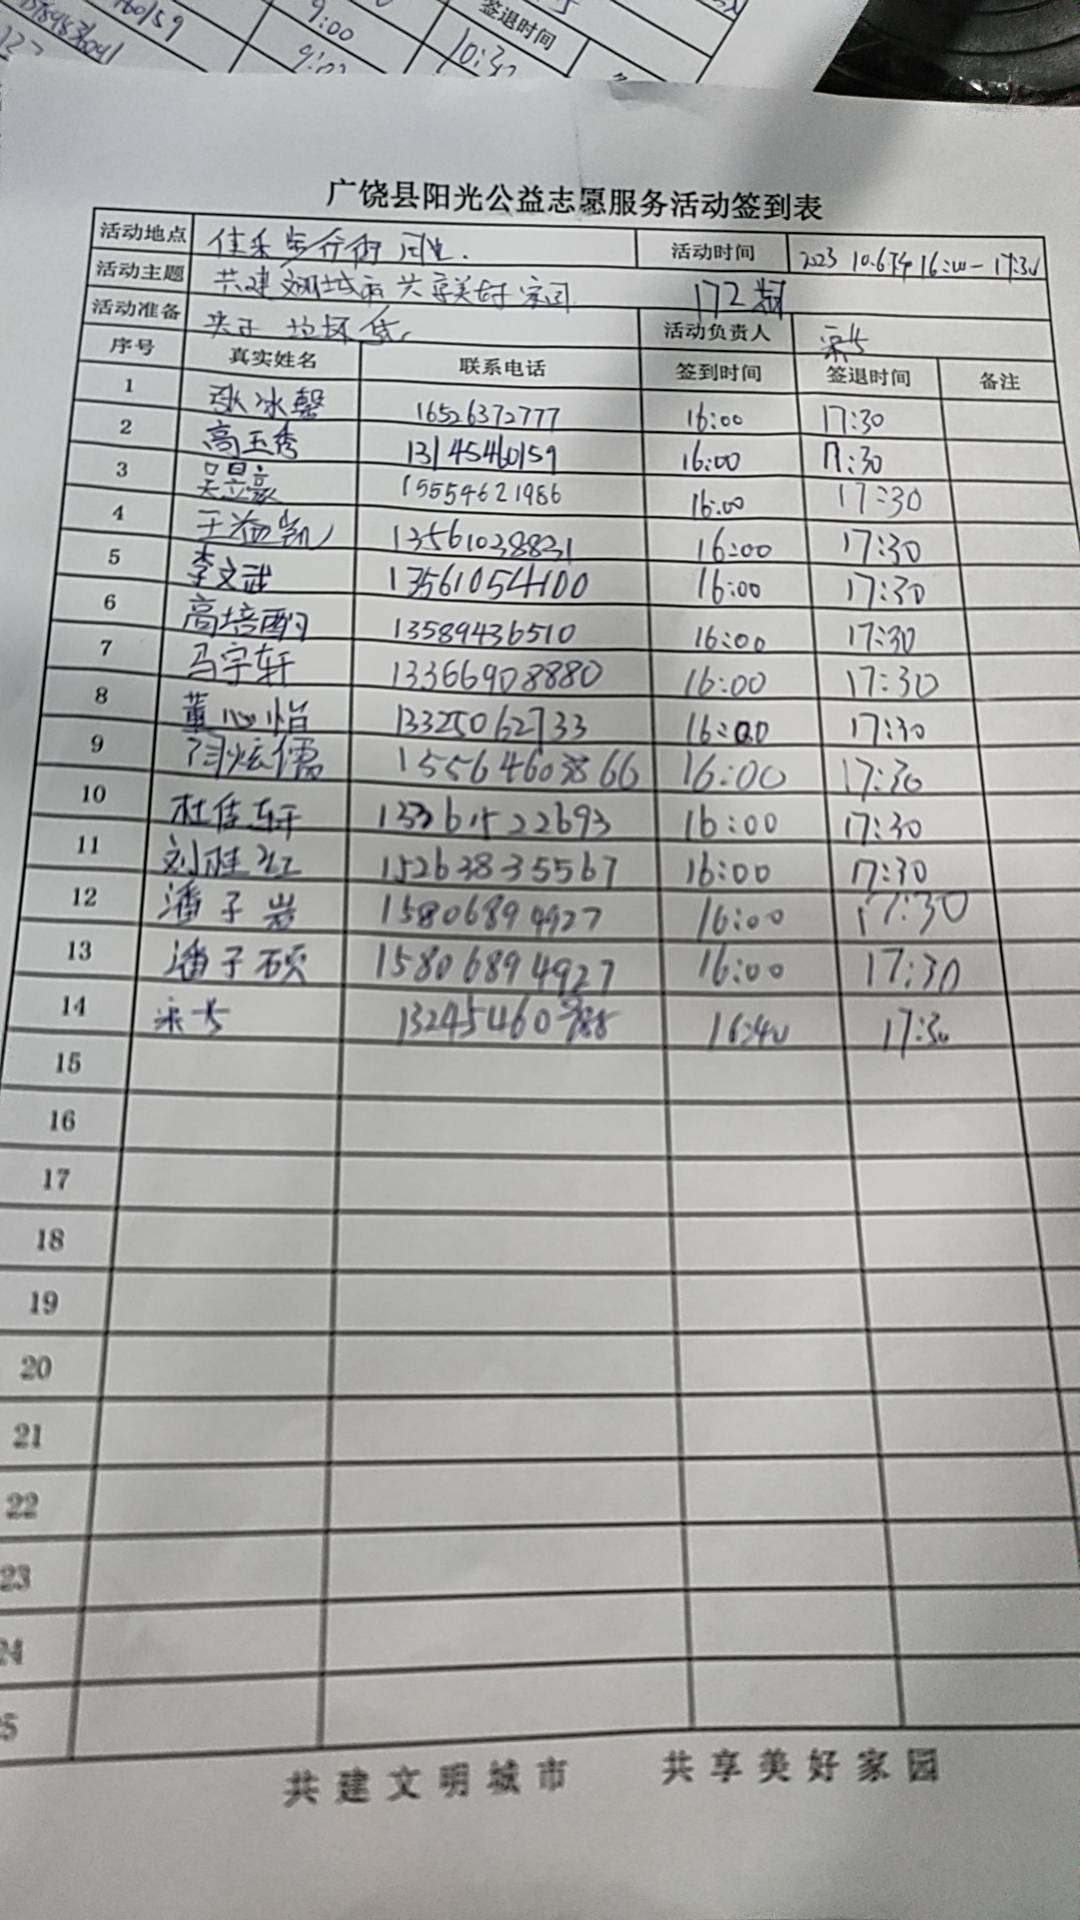 160159
9:00
签退时间
10:30
广饶县阳光公益志愿服务活动签到表
活动地点 佳乐步行街 周边. 活动时间 2023 10.6下午16:00-17:30
活动主题 共建文明城市共享美好家园 172期
活动准备 夹子 垃圾袋. 活动负责人
序号 真实姓名 联系电话 签到时间 签退时间 备注
1 张冰馨 16526372777 16:00 17:30
2 高玉秀 13145460159 16:00 17:30
3 吴昱豪 15554621986 16:00 17:30
4 王益凯 13561038831 16:00 17:30
5 李文武 13561054100 16:00 17:30
6 高培酌 13589436510 16:00 17:30
7 马宇轩 13366908880 16:00 17:30
8 董心怡 13325062733 16:00 17:30
9 闫炫儒 15564603866 16:00 17:30
10 杜佳轩 13361522693 16:00 17:30
11 刘胜江 15263835567 16:00 17:30
12 潘子岩 15806894927 16:00 17:30
13 潘子硕 15806894927 16:00 17:30
14 16:40 17:30
15
16
17
18
19
20
21
22
23
24
25
共建文明城市 共享美好家园